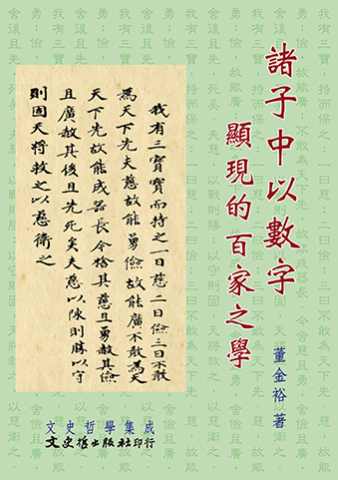 諸子中以數字
顯現的百家之學
董金裕 著
我有三寶寶而持之一曰慈二曰儉三曰不敢
為天下先夫慈故能勇儉故能廣不敢為天
天下先故能成器長今捨其慈且勇赦其儉
且廣赦其後且先死矣夫慈以陳則勝以守
則固天將救之以慈衛之
文史哲學集成
文史哲出版社印行